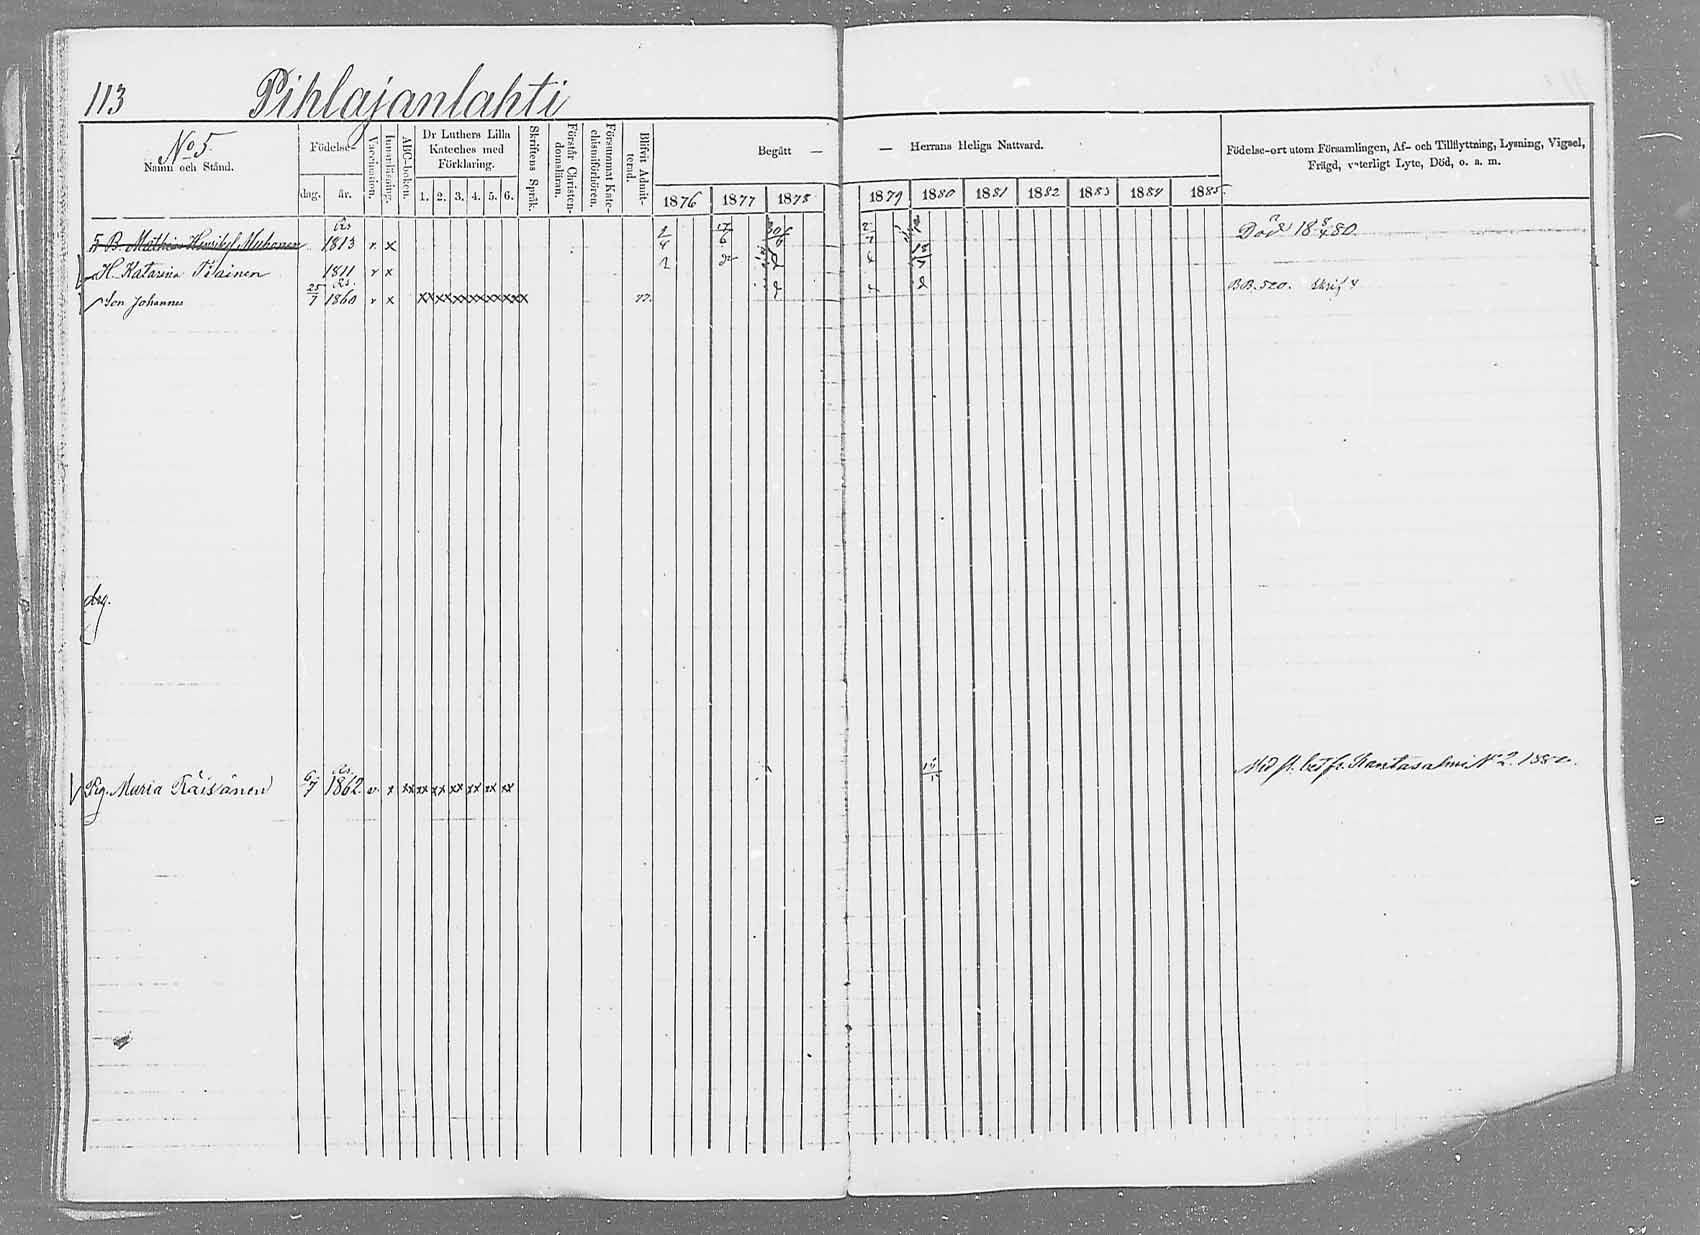 113 Pihlajanlahti
No 5.
Namn och Stånd.
Födelse-
dag. år.
Vaccination.
Innanläsning.
ABC-boken.
Dr Luthers Lilla Kateches med Förklaring.
1. 2. 3. 4. 5. 6.
Skriftens Språk.
Förstår Christendomsläran.
Försummat Katechismiförhören.
Blifvit Admitterad.
Begått — — Herrans Heliga Nattvard.
1876 1877 1878 1879 1880 1881 1882 1883 1884 1885
Födelse-ort utom Församlingen, Af- och Tillflyttning, Lysning, Vigsel,
Frägd, vsterligt Lyte, Död, o. a. m.
B. Mathias 1813 v x Död 18 8/4 80.
H. Katarina Tiainen 1811 v x
Son Johannes 25/7 1860 v x xx xx xx xx xx xx 77. BB. 520.
drg.
Pig. Maria Räisänen 6/7 1862 v. x xx xx xx xx xx xx xx Kantasalmi N 2. 1880.